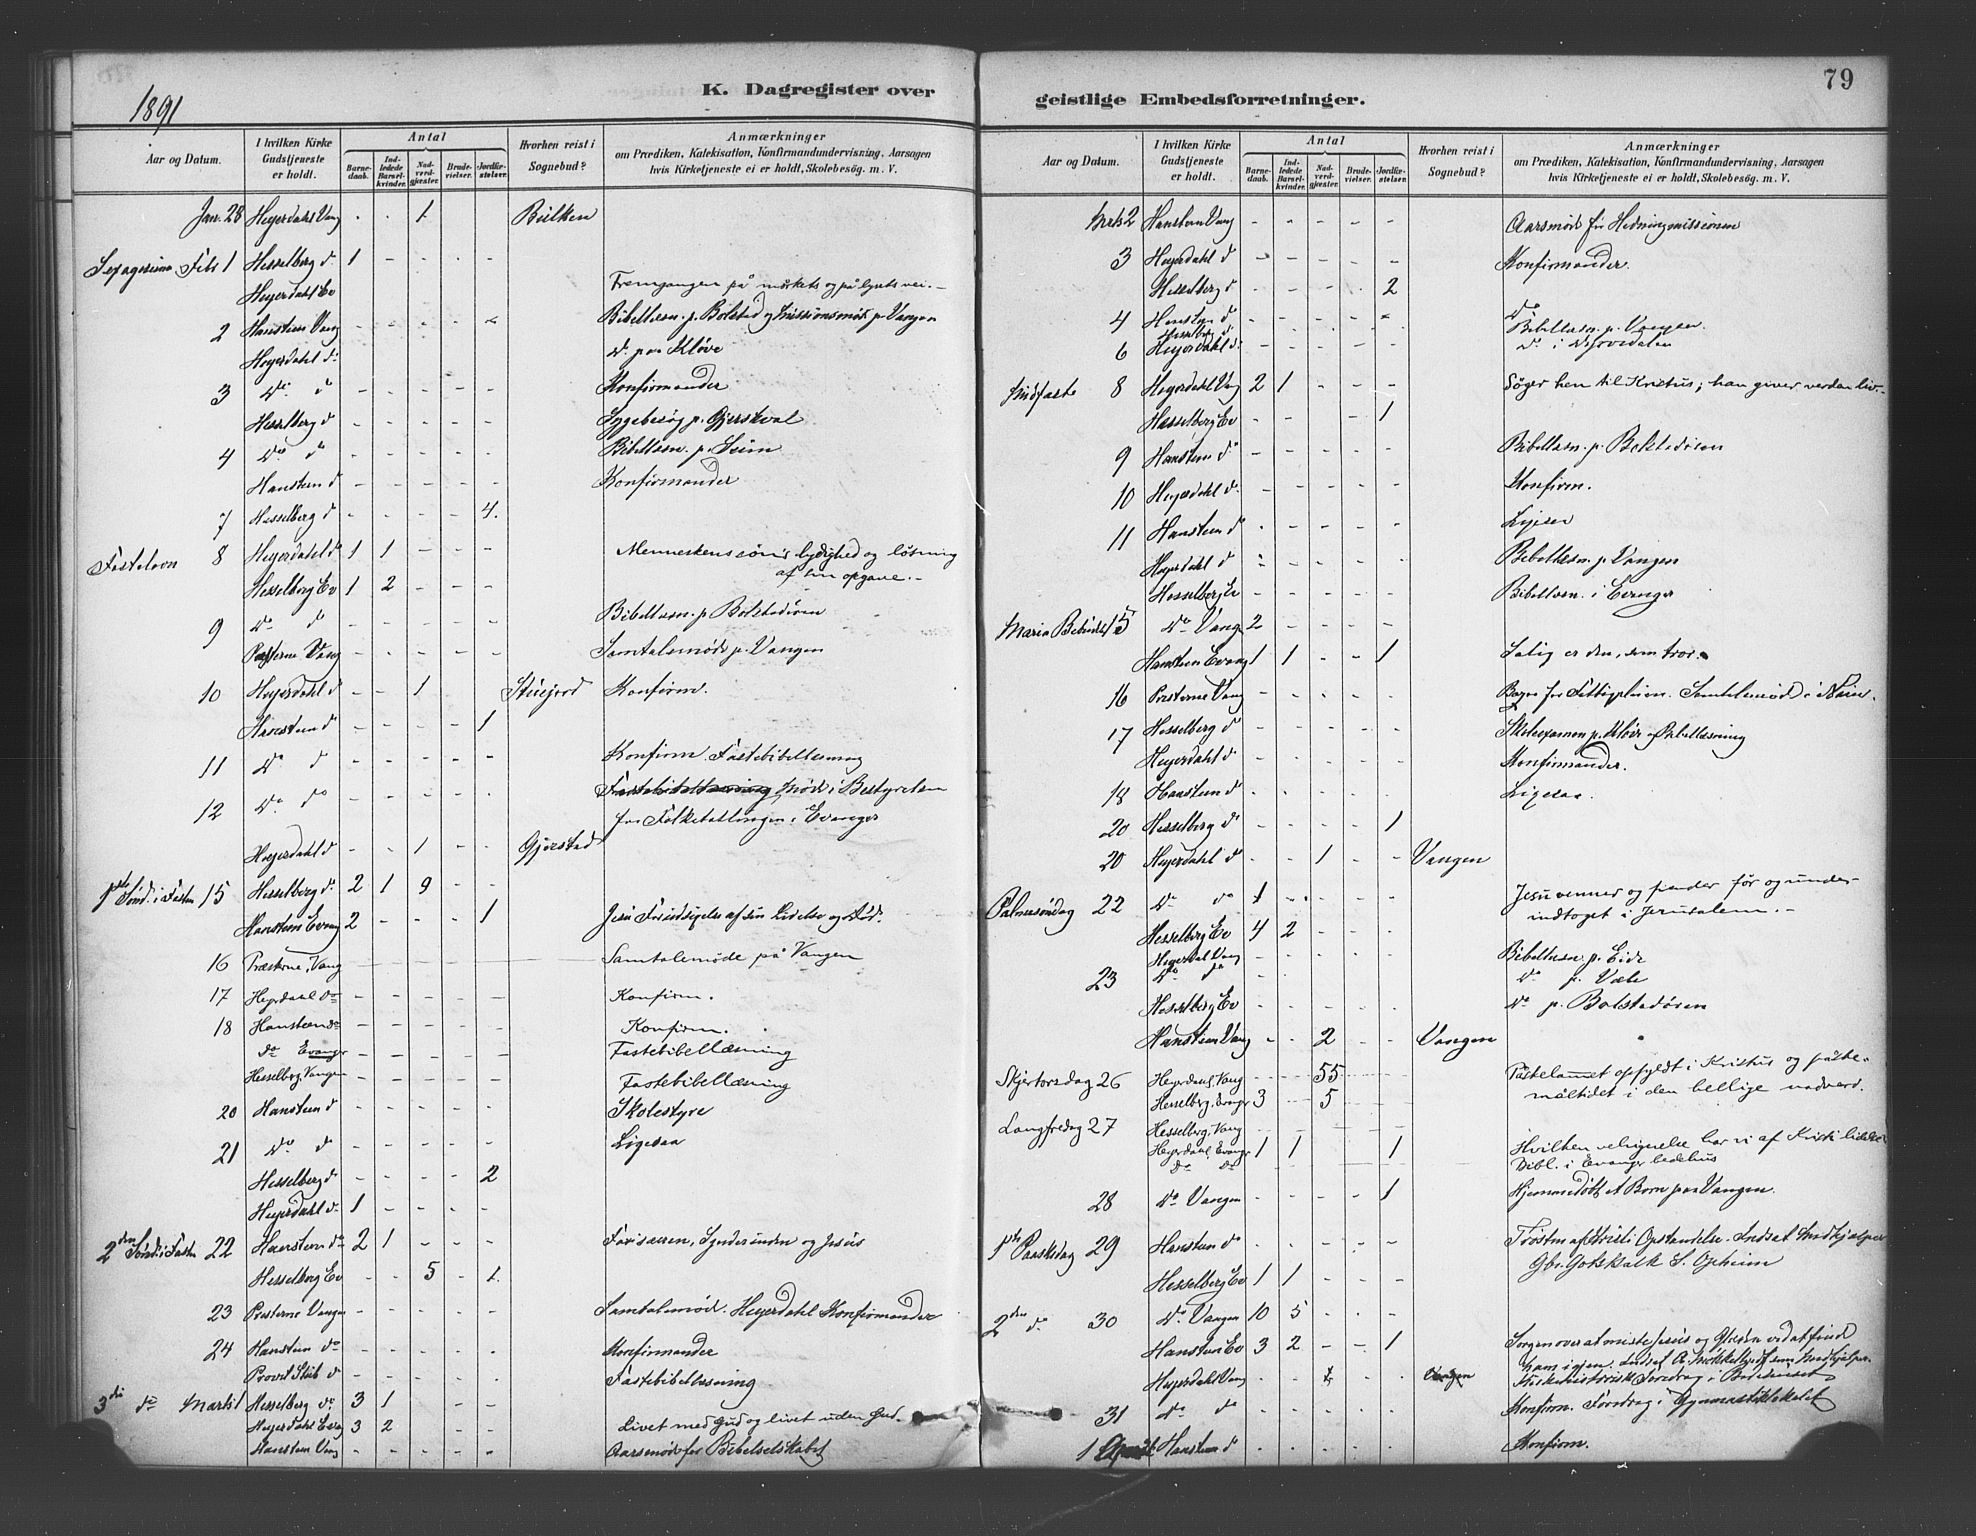 79
1891
K. Dagregister over
geistlige Embedsforretninger.
Aar og Datum.
I hvilken Kirke Gudstjeneste er holdt.
Antal
Barnedaab.
Indledede Barselkvinder.
Nadverdgjæster.
Brudevielser.
Jordfæstelser.
Hvorhen reist i Sognebud?
Anmærkninger
om Prædiken, Katekisation, Konfirmandundervisning, Aarsagen
hvis Kirketjeneste ei er holdt, Skolebesøg. m. V.
Jan. 28 Heyerdahl Vang - - 1 Bulken
Febr 1 Hesselberg do 1 - - - -
Heyerdahl Ev Fremgangen på mørkets og på lysets vei. -
2 Hansteen Vang - - - - - Bibellæsn. p. Bolstad og Missionsmøde p. Vangen
Heyerdahl do Do paa Kløve
3 Do do - - - - - Konfirmander
Hesselberg d - - - - - Sygebesøg p. Gjerskval
4 Do do - - - - - Bibellæsn. p. Seim
Hansteen d - - - - - Konfirmander
7 Hesselberg d - - - - 4.
Fastelavn 8 Heyerdahl do 1 1 - - - Menneskens søns lydighed og løsning
af sin opgave. -
Hesselberg Ev 1 2 - - -
9 Do do - - - - - Bibellæsn. p. Bolstadøren
Presterne Vang - - - - - Samtalemøde p. Vangen
10 Heyerdahl d - - 1 Konfirm.
Hansteen do - - - - 1
11 Do do - - - - - Konfirm. Fastebibellæsning
12 Do do - - - - - Fastebibellæsning Møde i Bestyrelsen
for Folketællingen i Evanger
Heyerdahl d - - 1 - - Gjerstad
1ste Sønd. i Fasten 15 Hesselberg do 2 1 9 - -
Hansteen Evang 2 - - - 1 Jesu Forudsigelse af sin Lidelse og Død.
16 Præsterne, Vang - - - - - Samtalemøde på Vangen
17 Heyerdahl Do - - - - - Konfirm.
18 Hansteen do - - - - - Konfirm.
do Evanger - - - - - Fastebibellæsning
Hesselberg, Vangen - - - - - Fastebibellæsning
20 Hansteen d - - - - - Skolestyre
21 Do d - - - - - Ligesaa
Hesselberg do - - - - 2
Heyerdahl do 1 - - - -
2den Sønd. i Faste 22 Hansteen do 2 1 - - - Farisæeren, Synderinden og Jesus
Hesselberg Ev - - 5 - 1.
23 Presterne Vangen - - - - - Samtalemøde. Heyerdahl Konfirmander
24 Hansteen do - - - - - Konfirmander
Provst Stub d - - - - - Fastebibellæsning
3die do Marts 1 Hesselberg do 3 1 - -
Heyerdahl Evang 3 2 - - Livet med Gud og livet uden Gud.
Hansteen Vang - - - - - Aarsmøde for Bibelselskabet
Aar og Datum.
I hvilken Kirke Gudstjeneste er holdt.
Antal
Barnedaab.
Indledede Barselkvinder.
Nadverdgjæster.
Brudevielser.
Jordfæstelser.
Hvorhen reist i Sognebud?
Anmærkninger
om Prædiken, Katekisation, Konfirmandundervisning, Aarsagen
hvis Kirketjeneste ei er holdt, Skolebesøg. m. V.
Marts 2 Hansteen Vang - - - - - Aarsmøde for Hedningmissionen
3 Heyerdahl d - - - - - Konfirmander.
Hesselberg d - - - - 2
4 Hansteen do - - - - - Do
Hesselberg d. Bibellæsn. p. Vangen.
6 Heyerdahl d: - - - - - Do i
Midfaste 8 Heyerdahl Vang 2 1 - - - Søger hen til Kristus; han giver verden liv. -
Hesselberg Ev - - 1
9 Hansteen do - - - - - Bibellæsn. p. Bolstadøren
10 Heyerdahl do - - - - - Konfirm.
11 Hansteen do - - - - - Ligesaa
Heyerdahl d - - - - - Bibellæsn. p. Vangen
Hesselberg Ev - - - - - Bibellæsn. i Evanger
Maria Bebud. 15 Do Vang 2 - - - -
Hansteen Evang 1 1 - - 1 Salig er den, som tror.
16 Presterne Vang - - - - - Samtalemøde i
17 Hesselberg d - - - - - Skoleexamen p. Kløve Bibellæsning
Heyerdahl d. - - - - - Konfirmander.
18 Hansteen d - - - - - Ligesaa.
20 Hesselberg do - - - - 1
20 Heyerdahl do - - 1 - - Vangen
Palmesøndag 22 Do do 1 - - - - Jesu venner og fiender før og under
indtoget i Jerusalem. -
Hesselberg Ev 4 2 - - -
Heyerdal Vang Bibellæsn. p. Eide
23 Do do - - - - - Do p.
Hesselberg Ev - - - - - Do p. Bolstadøren
Hansteen Vang - - 2 - - Vangen
Skjertorsdag 26 Heyerdahl, Vang - - 55 - - Påskelammet opfyldt i Kristus og påske-
Hesselberg, Evanger 3 - 5 - - måltidet i den hellige nadverd.
Langfredag 27 Hesselberg, Vang - - - - -
Heyerdahl, Evanger 1 1 - - 1 Hvilken velsignelse har vi af Kristi lidelse
do do Bibl. i Evanger bedehus
28 Do Vangen - - - - 1 Hjemmedøbt et Barn paa Vangen.
1ste Paaskedag 29 Hansteen do - - - - - Trøsten af Kristi Opstandelse. Indsat Medhjælper
Gbr. Gotskalk S. Opheim
Hesselberg Ev 1 1 - - -
2den do. 30 Do Vangen 10 5 - - -
Hansteen Ev 3 2 - - 1 Sorgen over at miste Jesus og Glæden ved at finde
Ham igjen. Indsat som Medhjælper.
Heyerdahl Vang - - 1 - - Vangen Kirkehistorisk Foredrag i Bedehuset
31 Do do - - - - - Konfirm. Foredrag i Gymnastiklokalet
1 April Hansteen d - - - - - Konfirm.